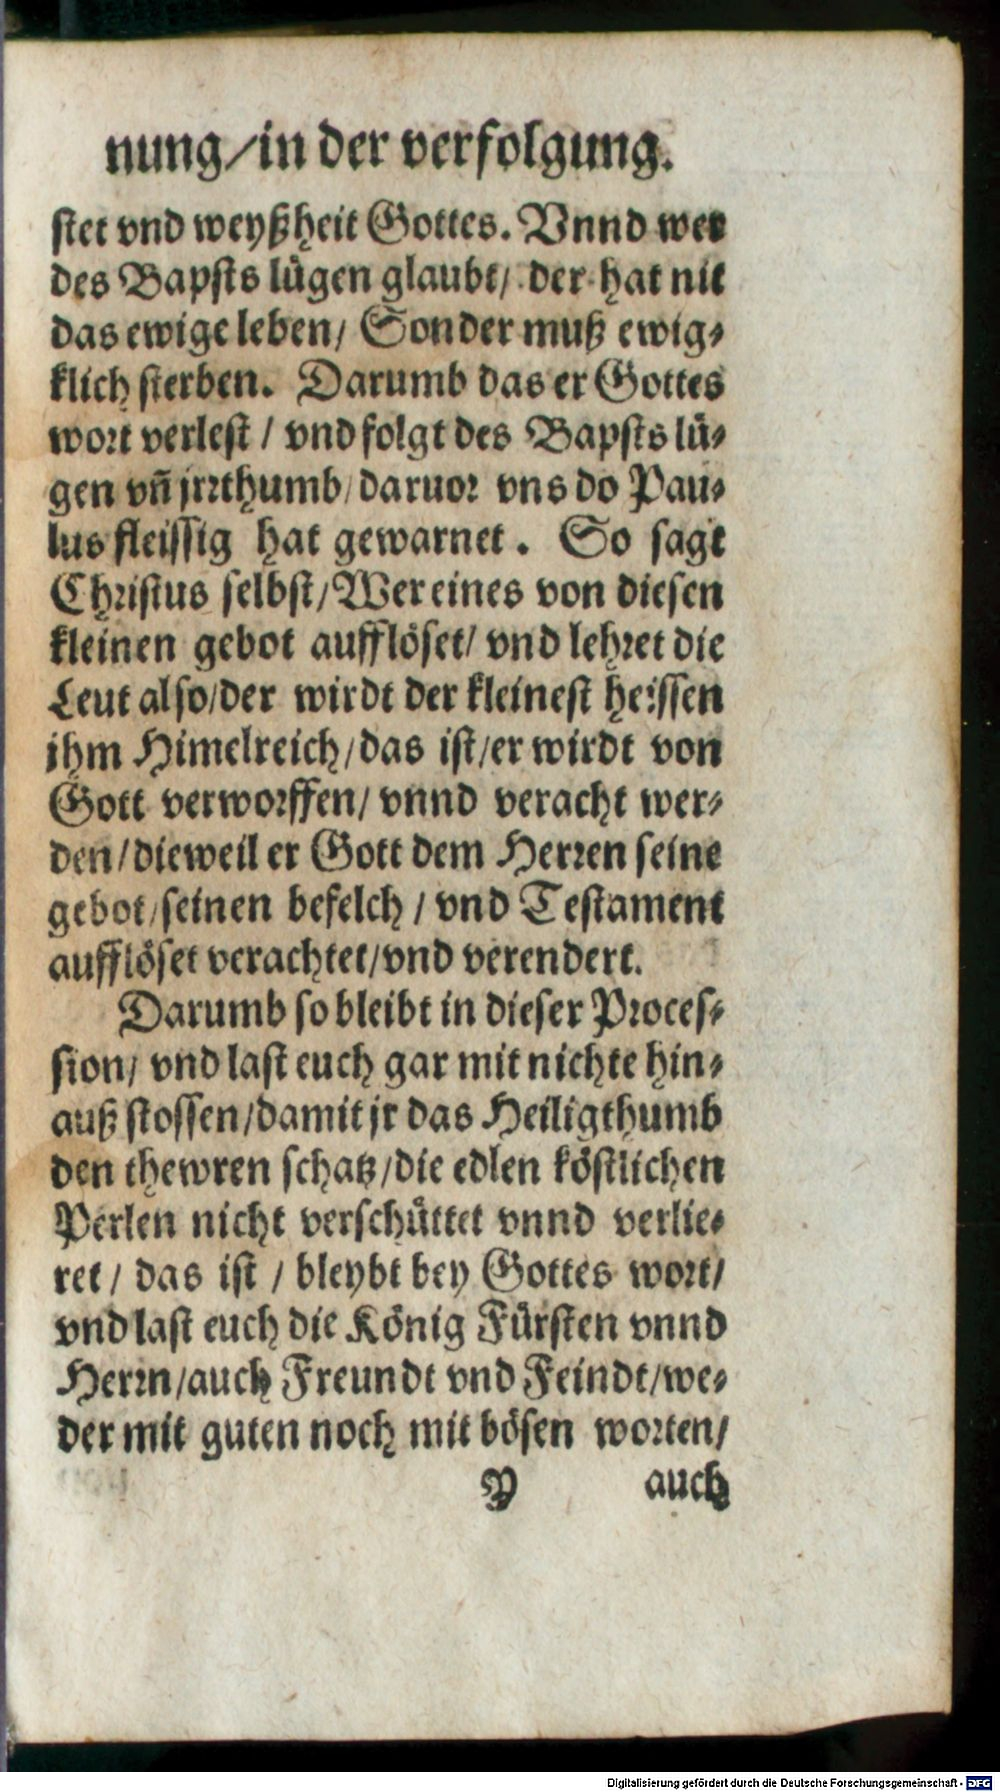 nung/in der verfolgung.
stet vnd weyßheit Gottes. Vnnd wer
des Bapsts lügen glaubt/ der hat nit
das ewige leben/ Sonder muß ewig⸗
klich sterben. Darumb das er Gottes
wort verlest / vnd folgt des Bapsts lü⸗
gen vñ jrrthumb/ daruor vns do Pau⸗
lus fleissig hat gewarnet. So sagt
Christus selbst/ Wer eines von diesen
kleinen gebot aufflöset/ vnd lehret die
Leut also/der wirdt der kleinest heissen
jhm Himelreich/das ist/er wirdt von
Gott verworffen/ vnnd veracht wer⸗
den/dieweil er Gott dem Herren seine
gebot/seinen befelch / vnd Testament
aufflöset verachtet/vnd verendert.
Darumb so bleibt in dieser Proces⸗
sion/ vnd last euch gar mit nichte hin⸗
auß stossen/damit jr das Heiligthumb
den thewren schatz/die edlen köstlichen
Perlen nicht verschüttet vnnd verlie⸗
ret/ das ist / bleybt bey Gottes wort/
vnd last euch die König Fürsten vnnd
Herrn/auch Freundt vnd Feindt/we⸗
der mit guten noch mit bösen worten/
P auch
Digitalisierung gefördert durch die Deutsche Forschungsgemeinschaft - DFG